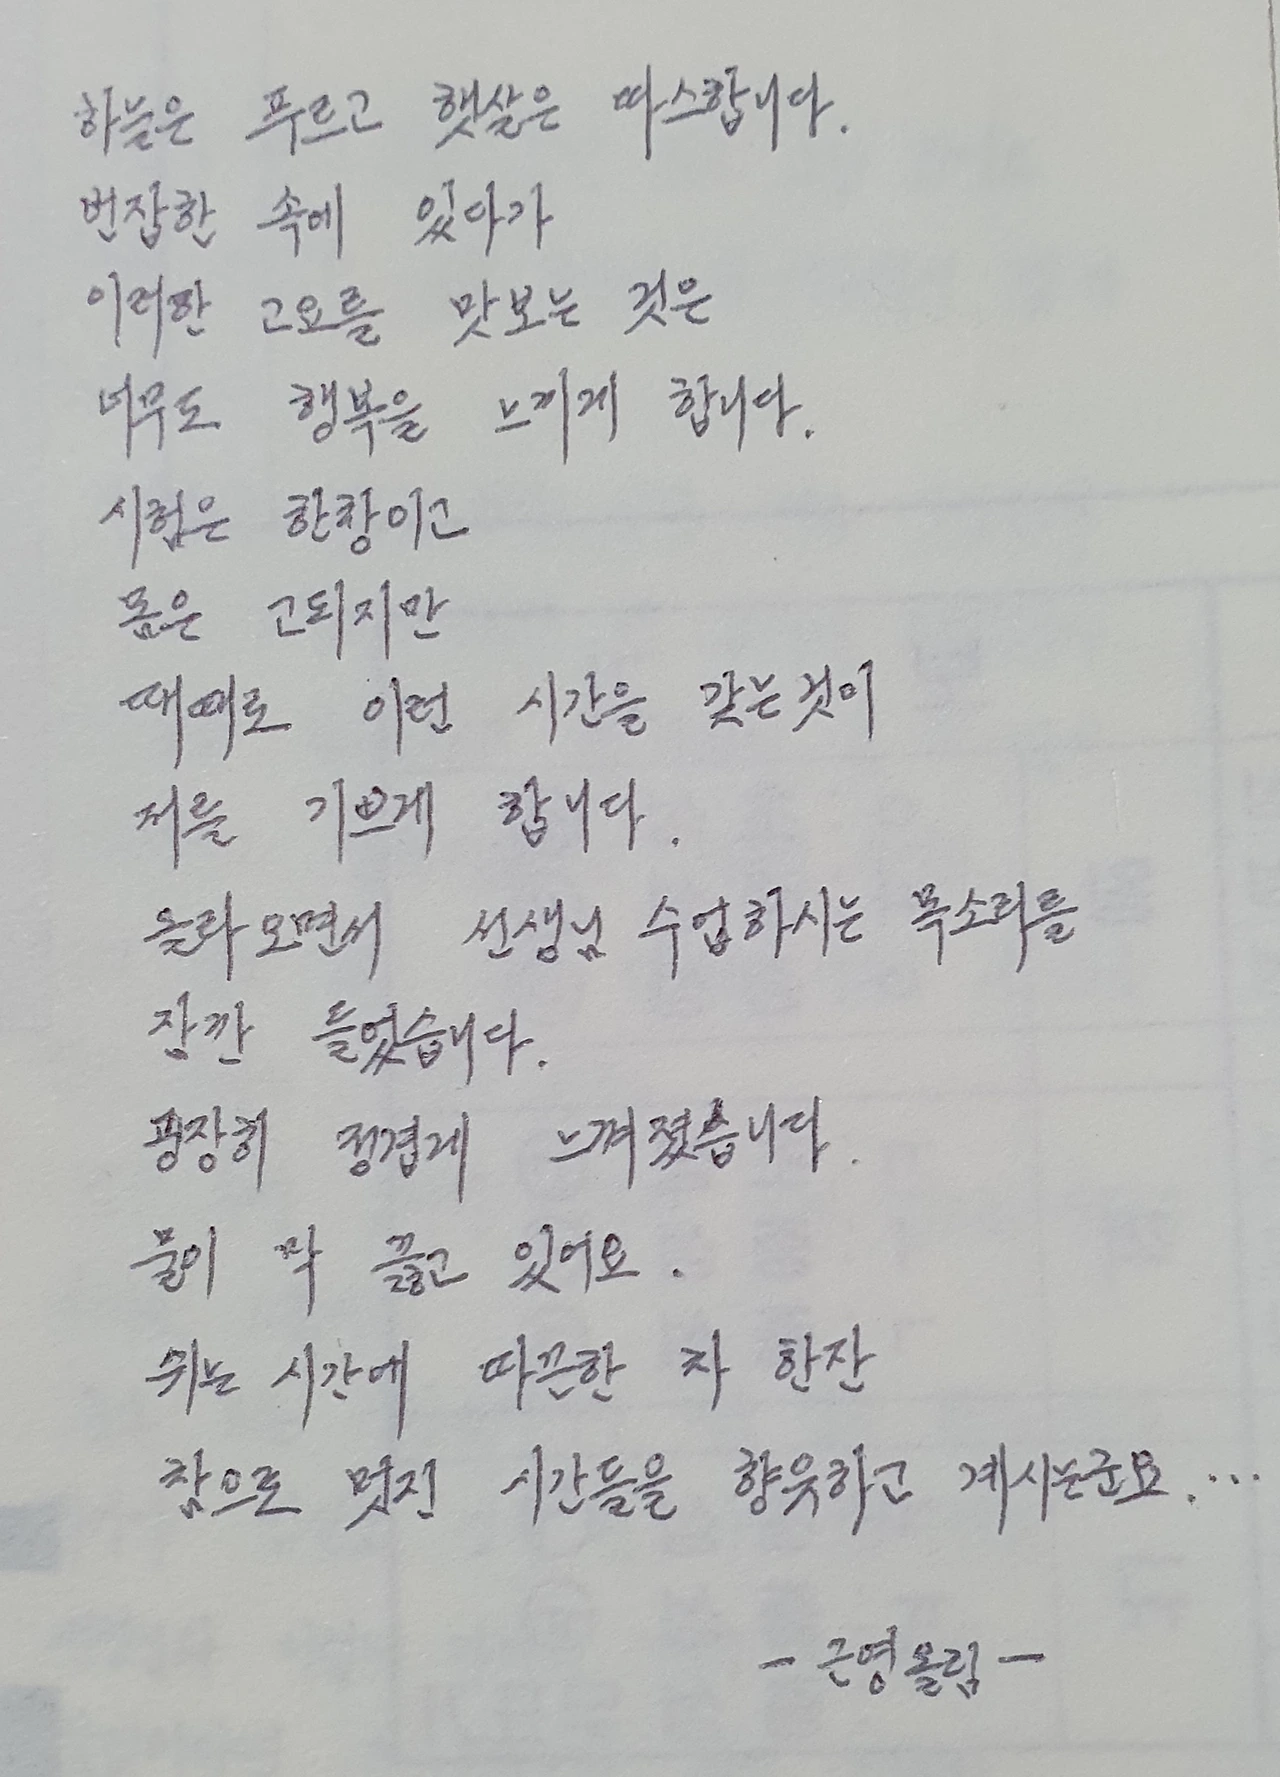 하늘은 푸르고 햇살은 따스합니다.
번잡한 속에 있다가
이러한 고요를 맛보는 것은
너무도 행복을 느끼게 합니다.
시험은 한창이고
몸은 고되지만
때때로 이런 시간을 갖는것이
저를 기쁘게 합니다.
올라오면서 선생님 수업하시는 목소리를
잠깐 들었습니다.
굉장히 정겹게 느껴졌습니다.
물이 막 끓고 있어요.
쉬는 시간에 따끈한 차 한잔
참으로 멋진 시간들을 향윳하고 계시는군요. ...
- 근영올림 -